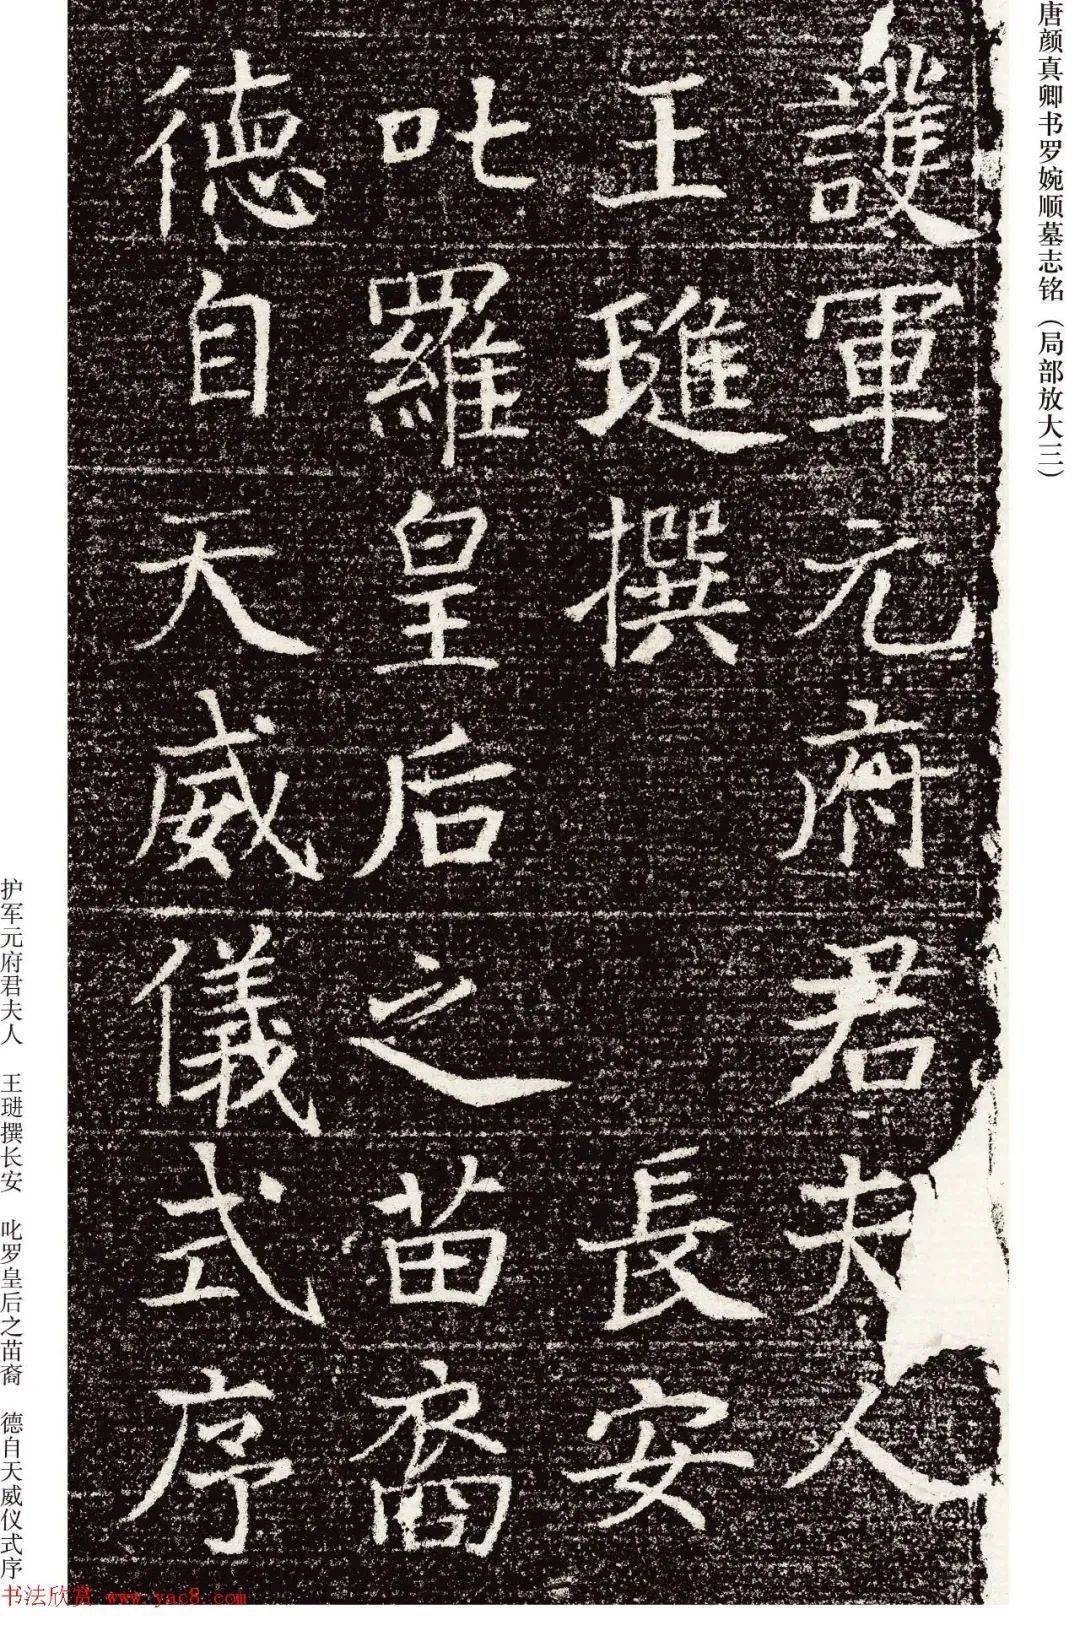 唐颜真卿书罗婉顺墓志铭（局部放大三）
護軍元府君夫人
王璡撰　長安
叱羅皇后之苗裔
德自天威儀式序
护军元府君夫人　王琎撰长安　叱罗皇后之苗裔　德自天威仪式序
书法欣赏 www.yac8.com